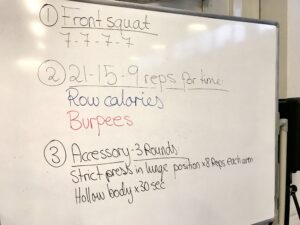 ① Front squat
7-7-7-7
② 21-15-9 reps for time
Row calories
Burpees
③ Accessory-3 Rounds
Strict press in lunge position x8 Reps each arm
Hollow body x 30 sec